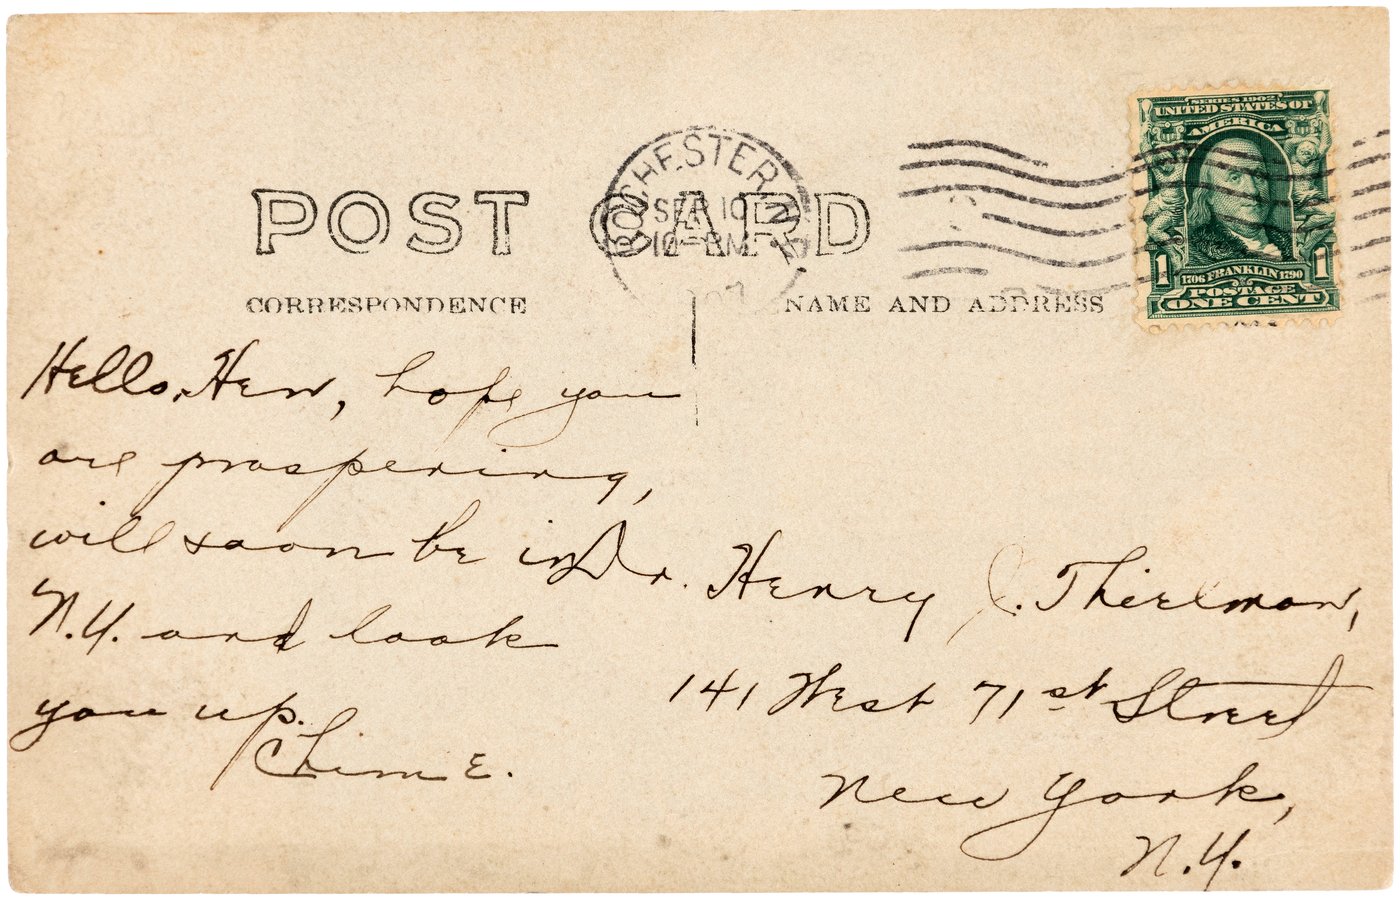 SERIES 1902
UNITED STATES OF
AMERICA
1 1706 FRANKLIN 1790 1
POSTAGE
ONE CENT
ROCHESTER, N.Y.
SEP 10
10-PM
POST CARD
CORRESPONDENCE
NAME AND ADDRESS
Hello, Hen, hope you
are prospering,
will soon be in
N.Y. and look
you up.
Chim E.
Dr. Henry J. Thielman,
141 West 71st Street
New York,
N.Y.